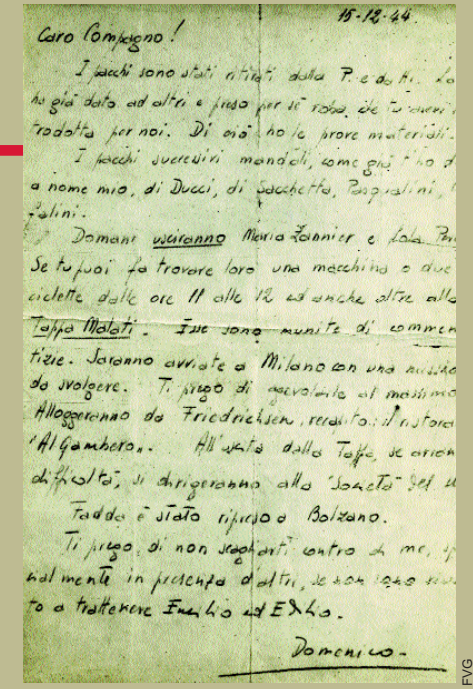 15-12-44.
Caro Compagno!
I pacchi sono stati ritirati dalla P. e da H. Lo
ha già dato ad altri e preso per sé roba, che tu avevi
trodotta per noi. Di ciò ho le prove materiali.
I pacchi successivi mandali, come già t'ho d
a nome mio, di Ducci, di Sacchetta, Pasqualini,
falini.
Domani usciranno Maria Zannier e Lola
Se tu puoi fa trovare loro una macchina o due
ciclette dalle ore 11 alle 12 ed anche oltre alla
Tappa Malati. Esse sono munite di commen
tizie. Saranno avviate a Milano con una missio
da svolgere. Ti prego di agevolarle al massimo
Alloggeranno da Friedrichsen, recapito: il ristora
"Al Gambero". All'uscita dalla Tappa, se
difficoltà, si dirigeranno alla "Società" del
Fadda è stato ripreso a Bolzano.
Ti prego, di non scagliarti contro di me,
cialmente in presenza d'altri, se non sono
to a trattenere Emilio ed Edilio.
Domenico-
FVG